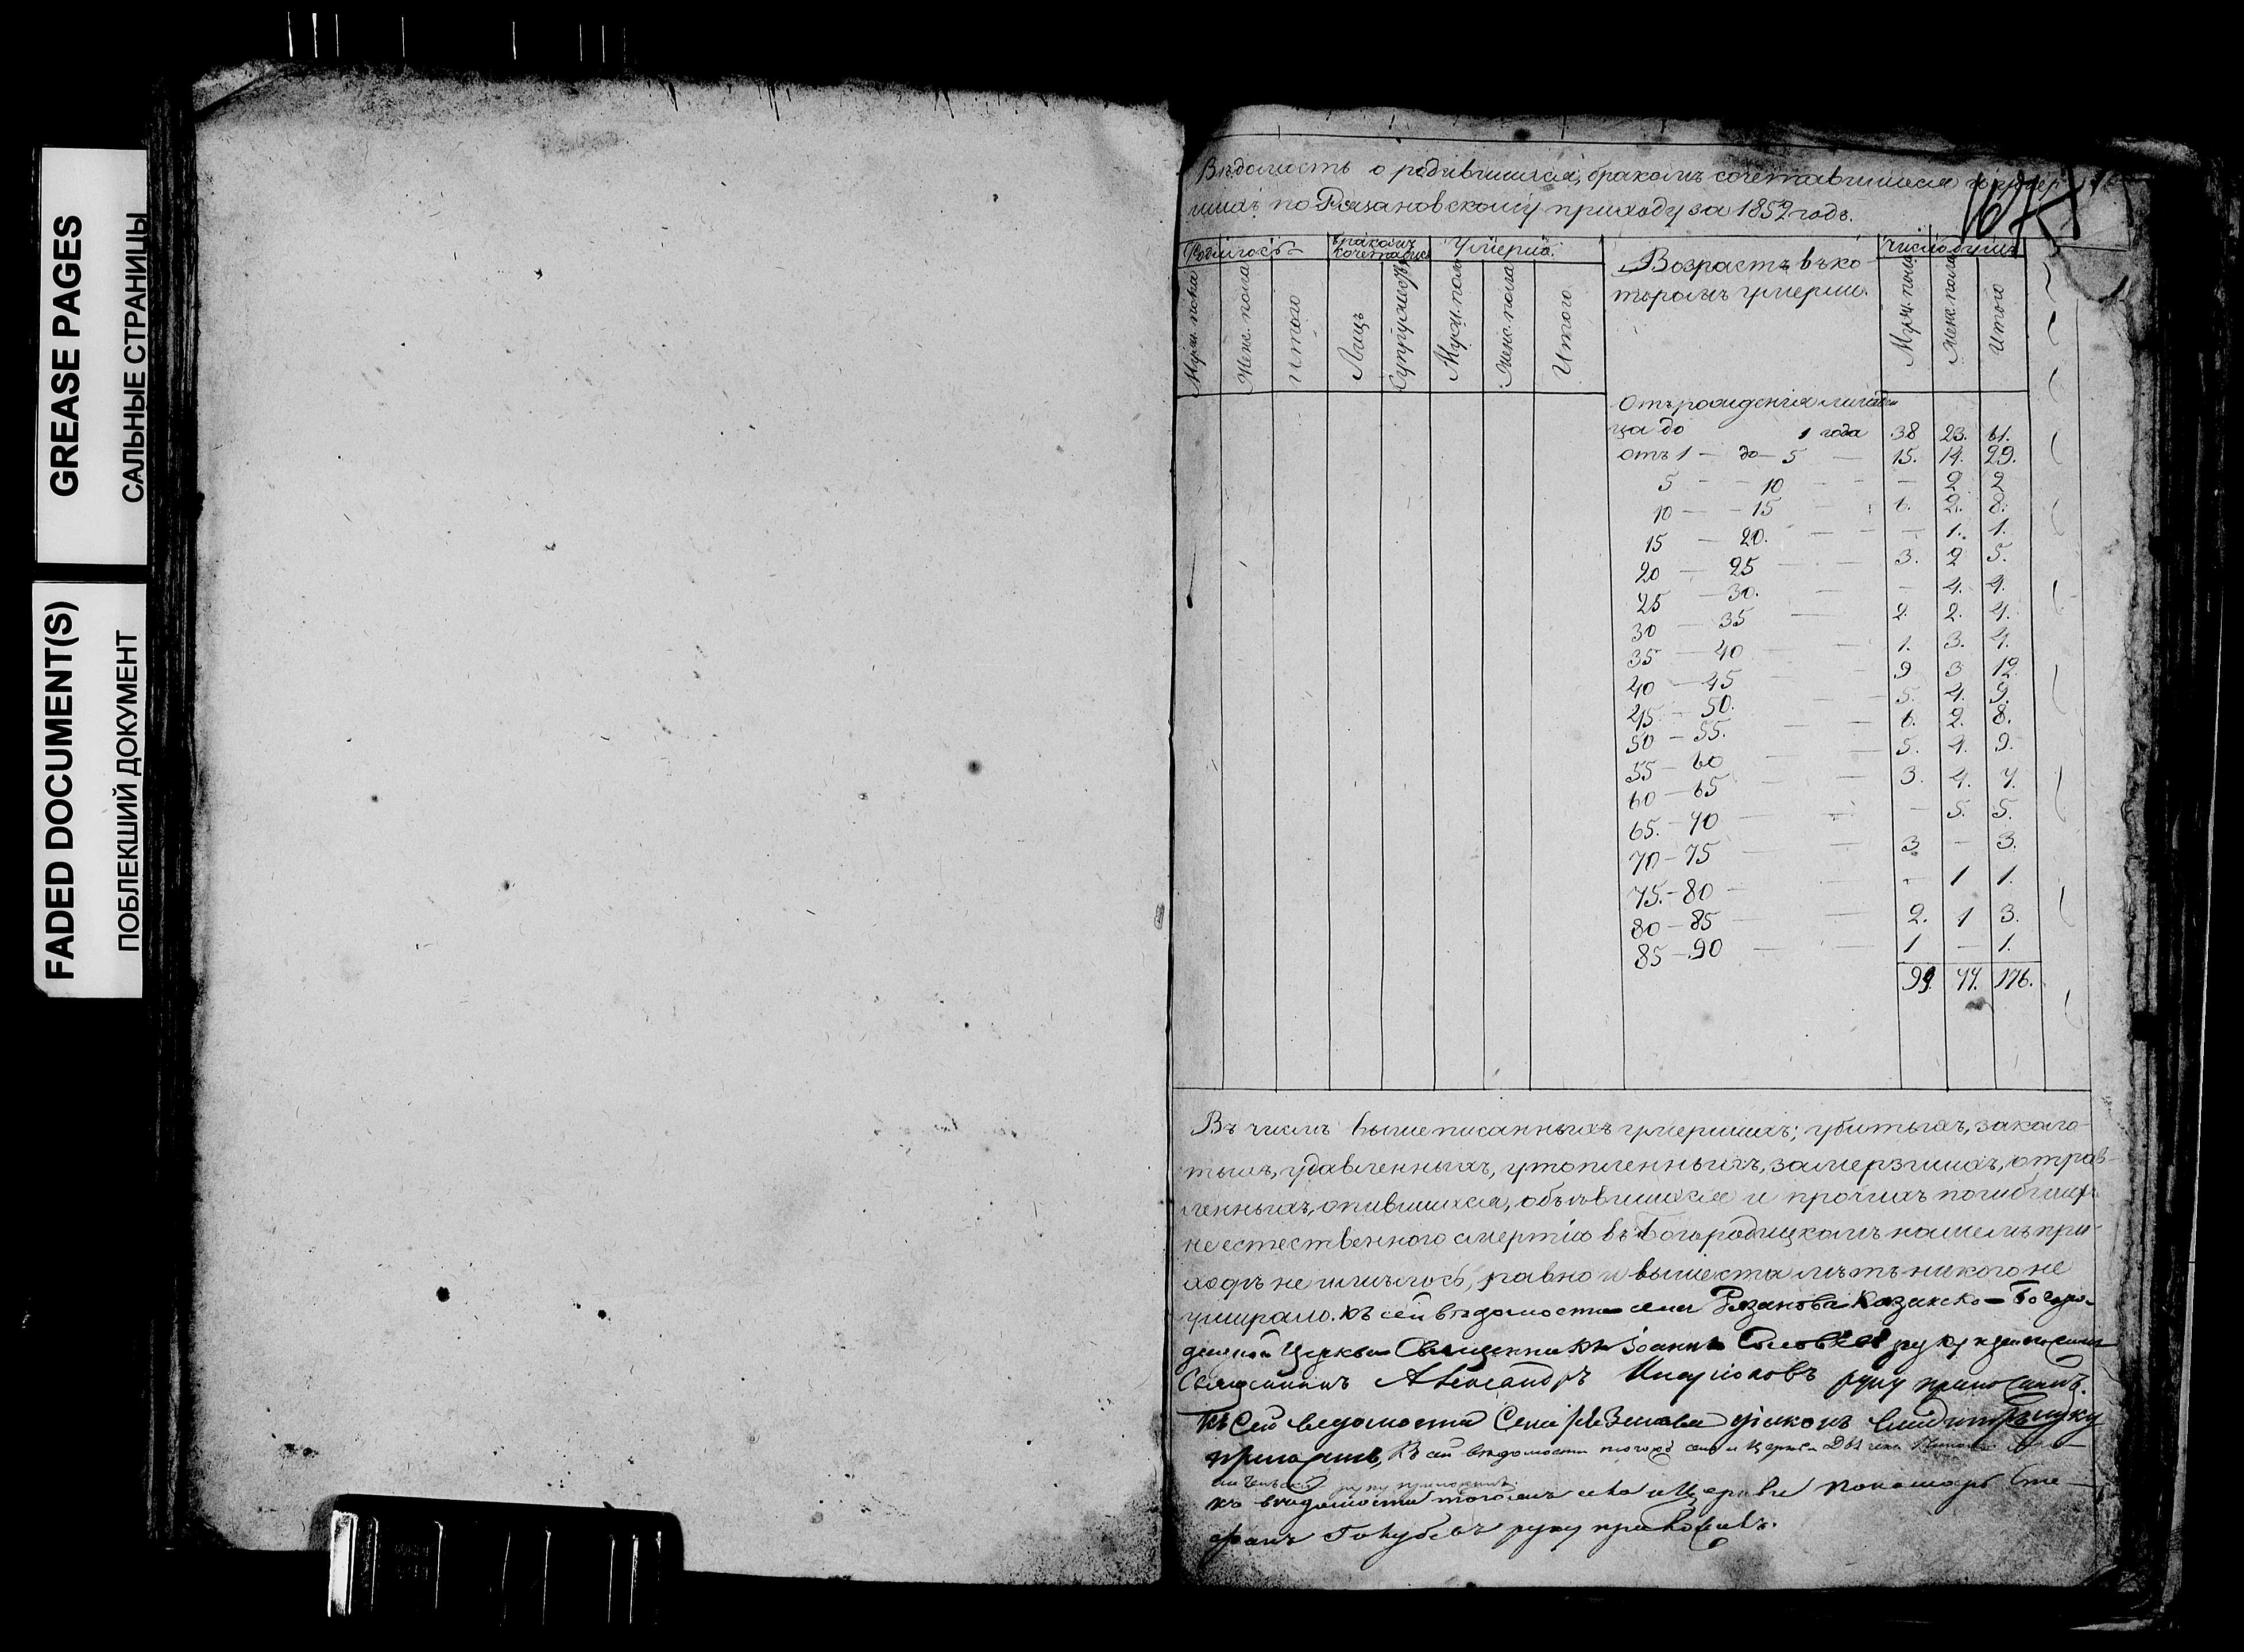 GREASE PAGES
САЛЬНЫЕ СТРАНИЦЫ
FADED DOCUMENT(S)
ПОБЛЕКШИЙ ДОКУМЕНТ
Вѣдомость о родившихся, бракомъ сочетавшихся и умер
шихъ по Рязановскому приходу за 1852 годъ.
Родилось
бракомъ сочетались
Умерло.
Возрастъ въ ко
торомъ умерли.
Число душъ
Муж. пола
Женс. пола
Итого
Лицъ
Супружествъ
Муж. пола
Женс. пола
Итого
Муж. пола
Женс. пола
Итого
Отъ рожденія младен
ца до 1 года 38 23. 61.
отъ 1 — до — 5 — 15. 14. 29.
5 — — 10 — — — 2 2
10 — — 15 — 6. 2. 8.
15 — 20. — — — 1. 1.
20 — 25 — — 3. 2 5.
25 — 30. — — 4. 4.
30 — 35 — 2. 2. 4.
35 — 40 — — 1. 3. 4.
40 — 45 — — 9 3 12.
45 — 50. — — 5. 4. 9.
50 — 55. — — 6. 2. 8.
55 — 60 — — 5. 4. 9.
60 — 65 — — 3. 4. 7.
65. — 70 — — — 5. 5.
70 — 75 — — 3 — 3.
75. — 80 — — — 1 1.
80 — 85 — — 2. 1 3.
85 — 90 — — 1 — 1.
99. 77. 176.
Въ числѣ вышеписанныхъ умершихъ; убитыхъ, заколо
тыхъ, удавленныхъ, утопленныхъ, замерзшихъ, отрав-
ленныхъ, опившихся, объѣвшихся и прочихъ погибшихъ
неестественного смертію въ Богородицкомъ нашемъ при-
ходѣ не имѣлось, равно и выше ста лѣтъ никого не
умирало. Къ сей вѣдомости села Рязанова Казанско-Богоро-
дицкой Церкви Священникъ Іоаннъ руку приложилъ
Священникъ Александръ руку приложилъ.
Къ сей ведомости Села Резанова дьяконъ руку
приложилъ, Къ сей вѣдомости тогожъ села и Церкви
руку приложилъ.
къ вѣдомости тогожъ села и Церкви пономарь Сте
фанъ Голубевъ руку приложилъ.